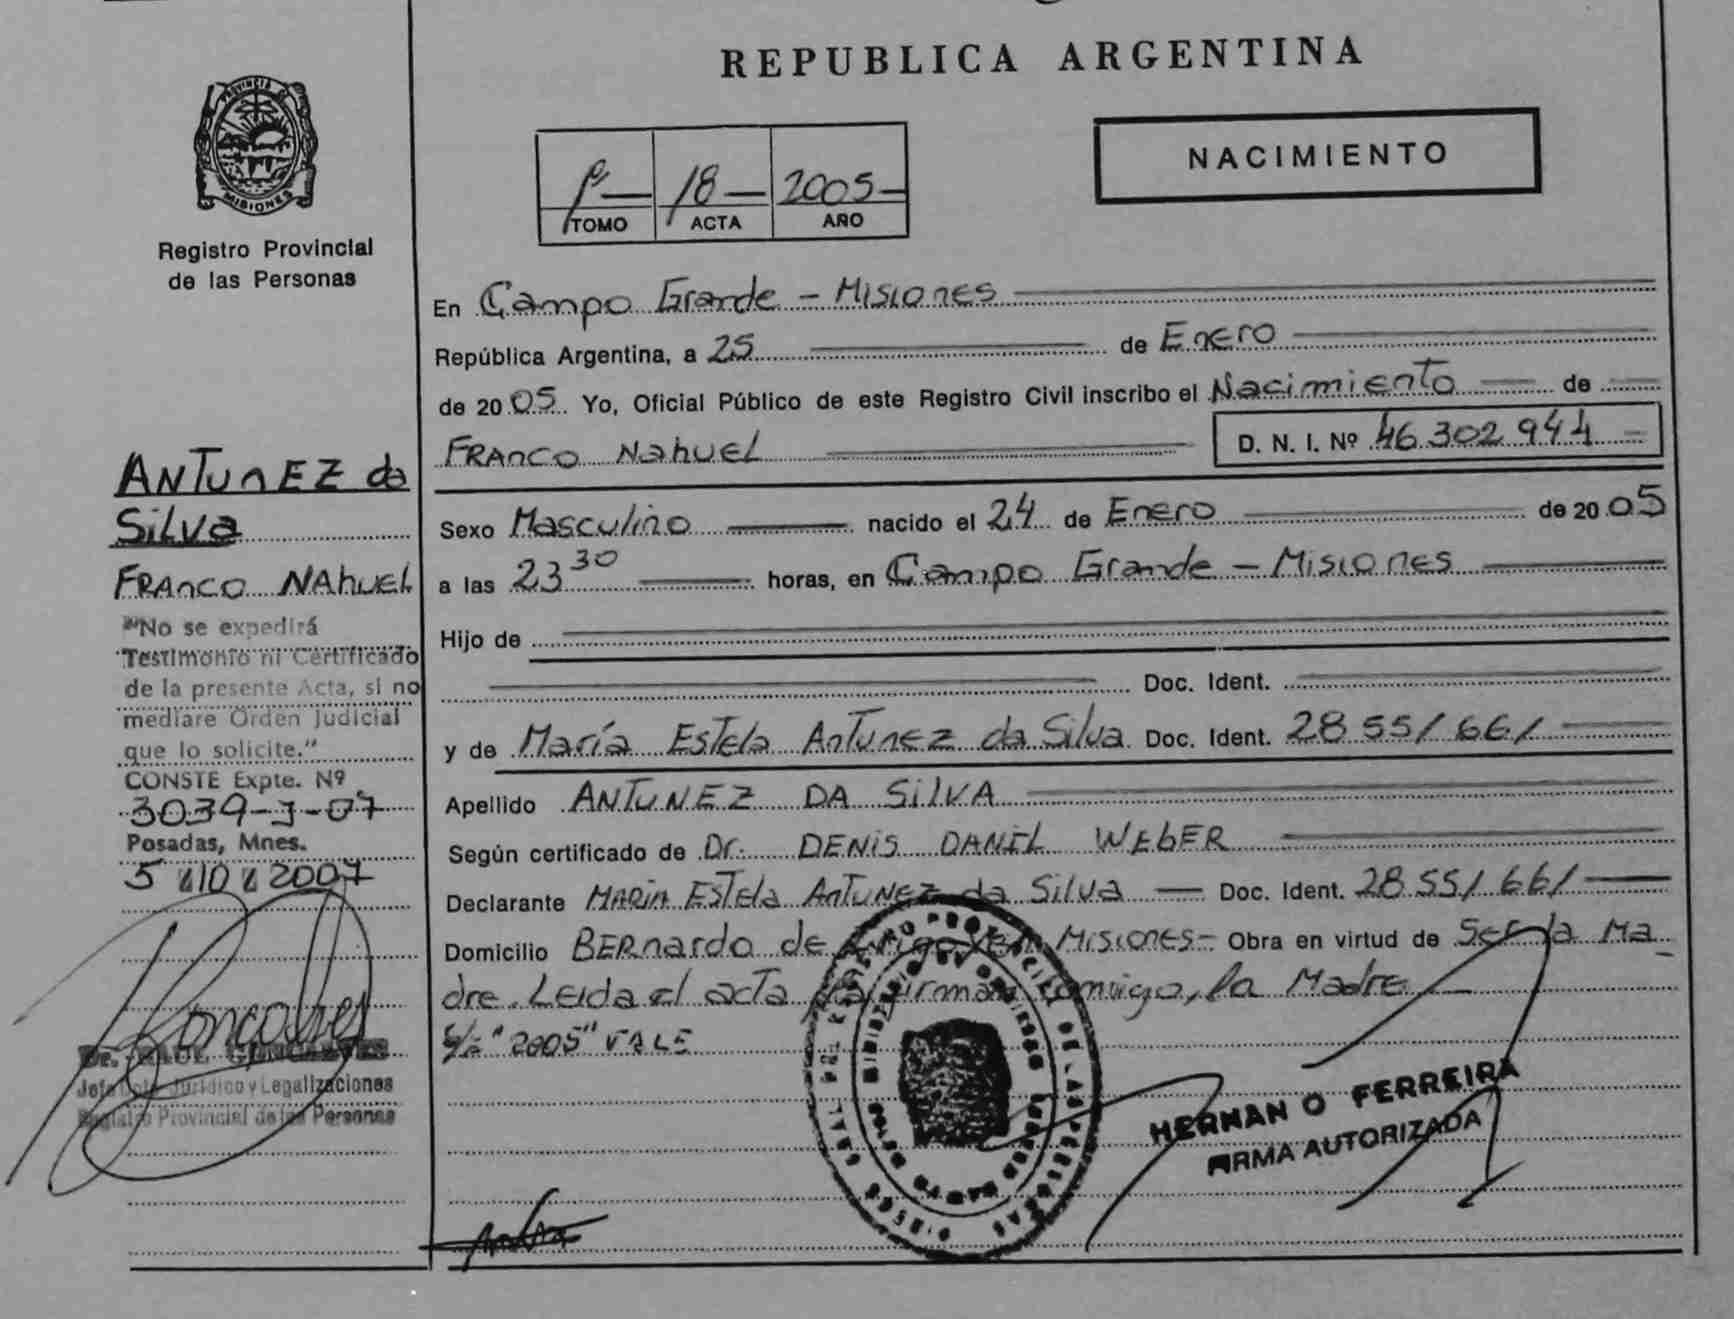 REPUBLICA ARGENTINA
PROVINCIA DE
MISIONES
Registro Provincial
de las Personas
18 2005
TOMO ACTA AÑO
NACIMIENTO
En Campo Grande - Misiones
República Argentina, a 25 de Enero
de 2005 Yo, Oficial Público de este Registro Civil inscribo el Nacimiento de
FRANCO NahuEL D. N. I. Nº 46.302.944
Sexo Masculino nacido el 24 de Enero de 2005
a las 23 30 horas, en Campo Grande - Misiones
Hijo de
Doc. Ident.
y de María Estela Antunez da Silva Doc. Ident. 28.551.661
Apellido ANTUNEZ DA SILVA
Según certificado de Dr. DENIS DANIL WEBER
Declarante MARIA Estela Antunez da Silva Doc. Ident. 28.551.661
Domicilio BERnardo de Irigoyen Misiones- Obra en virtud de Ser la Ma
dre. Leida el acta la firman conmigo, la Madre
"2005" VALE
ANTUNEZ da
Silva
FRANCO NAhuEL
"No se expedirá
Testimonio ni Certificado
de la presente Acta, si no
mediare Orden Judicial
que lo solicite."
CONSTE Expte. Nº
3039-J-07
Posadas, Mnes.
5 /10/ 2007
Jefe Dpto. Jurídico y Legalizaciones
Registro Provincial de las Personas
HERNAN O FERREIRA
FIRMA AUTORIZADA